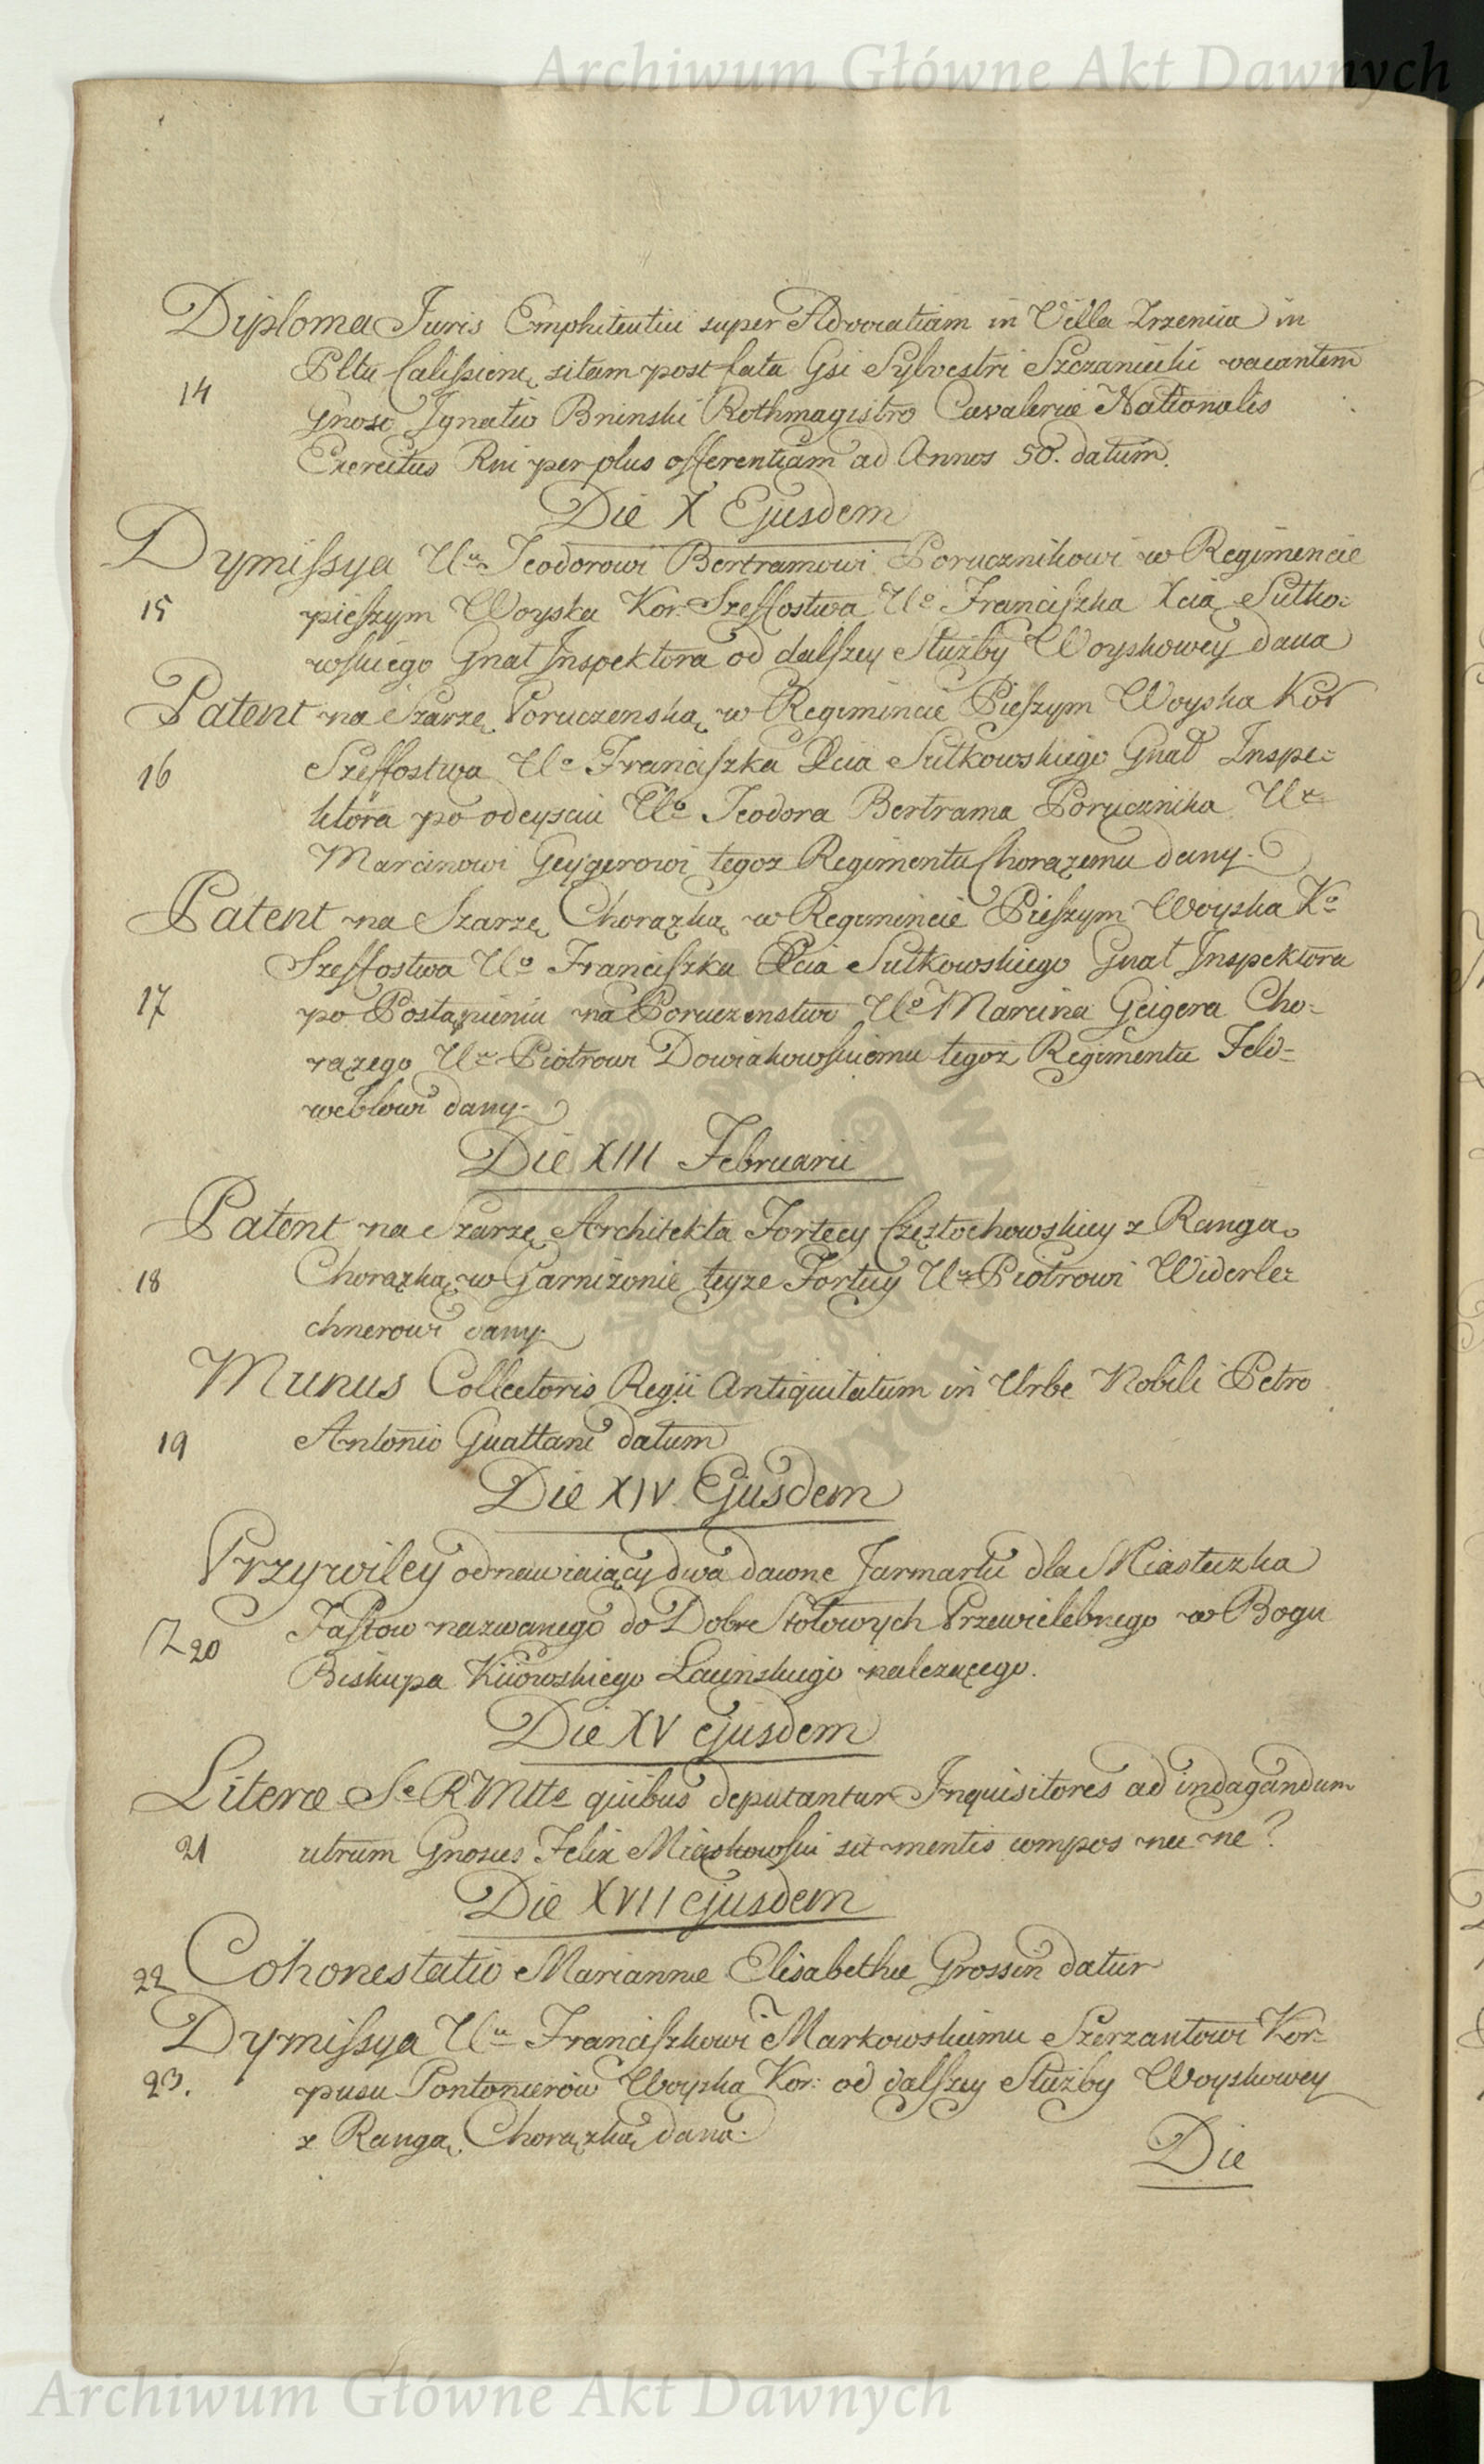 Archiwum Główne Akt Dawnych
Diploma Juris Emphiteutici super Advocatiam in Villa Zrzenica in
14 Pltu Calissiens. sitam post fata Gsi Sylvestri Szczaniecki vacantem
Gnoso Ignatio Bninski Rothmagistro Cavaleriæ Nationalis
Exercitus Rni per plus offerentiam ad Annos 50. datum.
Die X Ejusdem
Dymissya Ur Teodorowi Bertramowi Porucznikowi w Regimencie
15 pieszym Woyska Kor. Szeffostwa Uo Franciszka Xcia Sułko=
wskiego Gnał Inspektora od dalszey Służby Woyskowey dana
Patent na Szarzę Poruczenską w Regimencie Pieszym Woyska Kor
16 Szeffostwa Uo Franciszka Xcia Sułkowskiego Gnał Inspe=
ktora po odeysciu Uo Teodora Bertrama Porucznika Ur
Marcinowi Geygerowi tegoz Regimentu Chorązemu dany.
Patent na Szarzę Chorązką w Regimencie Pieszym Woyska Ko
Szeffostwa Uo Franciszka Xcia Sułkowskiego Gnał Inspektora
17 po Postąpieniu na Poruczenstwo Uo Marcina Geigera Cho=
rązego Ur Piotrowi Dowiakowskiemu tegoż Regimentu Feld=
weblowi dany.
Die XIII Februarii
Patent na Szarzę Architekta Fortecy Częstochowskiey z Rangą
18 Chorązką w Garnizonie teyze Fortecy Ur Piotrowi Widerle=
chnerowi dany.
Munus Collectoris Regii Antiquitatum in Urbe Nobili Petro
19 Antonio Guattani datum
Die XIV. Ejusdem
Przywiley odnawiaiący dwa dawne Jarmarki dla Miasteczka
20 Fastow nazwanego do Dobr Stołowych Przewielebnego w Bogu
Biskupa Kiiowskiego Łacińskiego nalezącego.
Die XV ejusdem
Literæ Se RMtte quibus deputantur Inquisitores ad indagandum
21 utrum Gnosus Felix Miąskowski sit mentis compos nec ne?
Die XVII ejusdem
22 Cohonestatio Mariannæ Elisabethæ Grossin datur
Dymissya Ur Franciszkowi Markowskiemu Szerzantowi Kor=
23. pusu Pontonierow Woyska Kor: od dalszey Służby Woyskowey
z Rangą Chorązką dana.
Die
Archiwum Główne Akt Dawnych